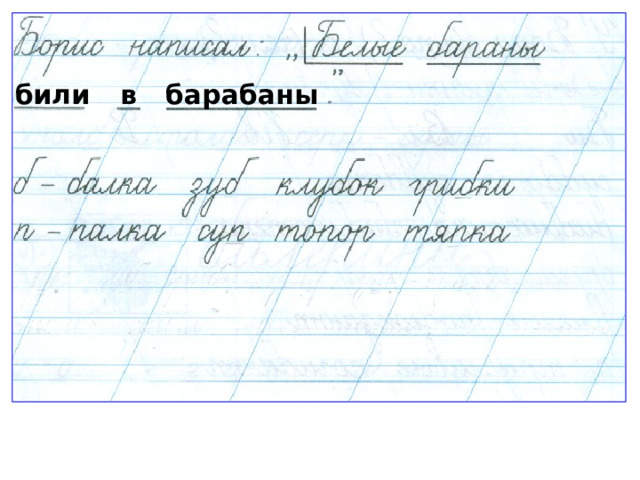 Борис написал: „Белые бараны
били в барабаны”.
б – балка зуб клубок грибки
п – палка суп топор тяпка